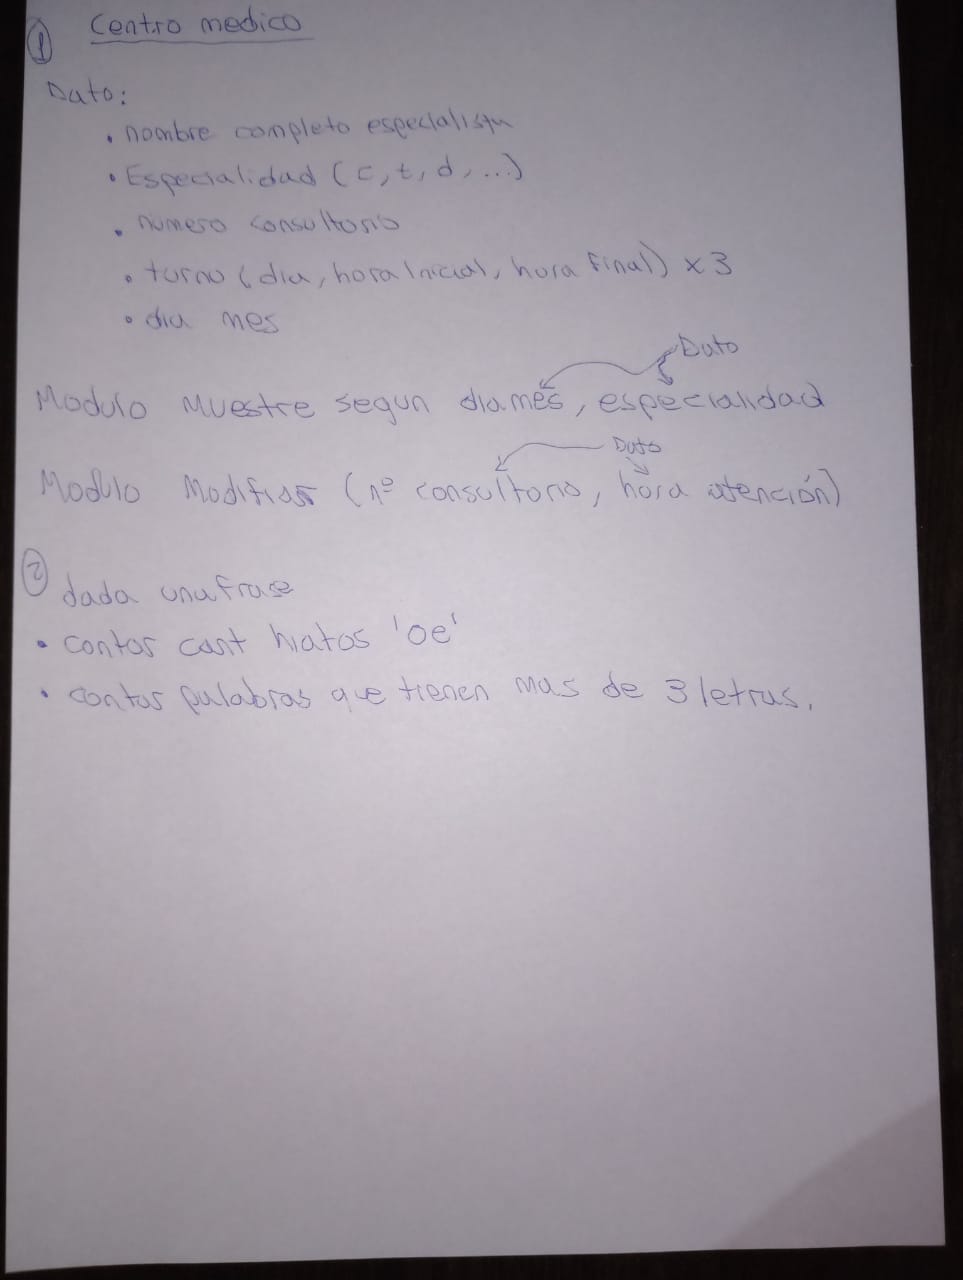 ① Centro medico
Dato:
• nombre completo especialista
• Especialidad (c, t, d, ...)
• numero consultorio
• turno (dia, hora Inicial, hora Final) x 3
• dia mes
Dato
Modulo Muestre segun dia mes, especialidad
Dato
Modulo Modificar (nº consultorio, hora atención)
② dada una frase
• contar cant hiatos 'oe'
• contar palabras que tienen mas de 3 letras.